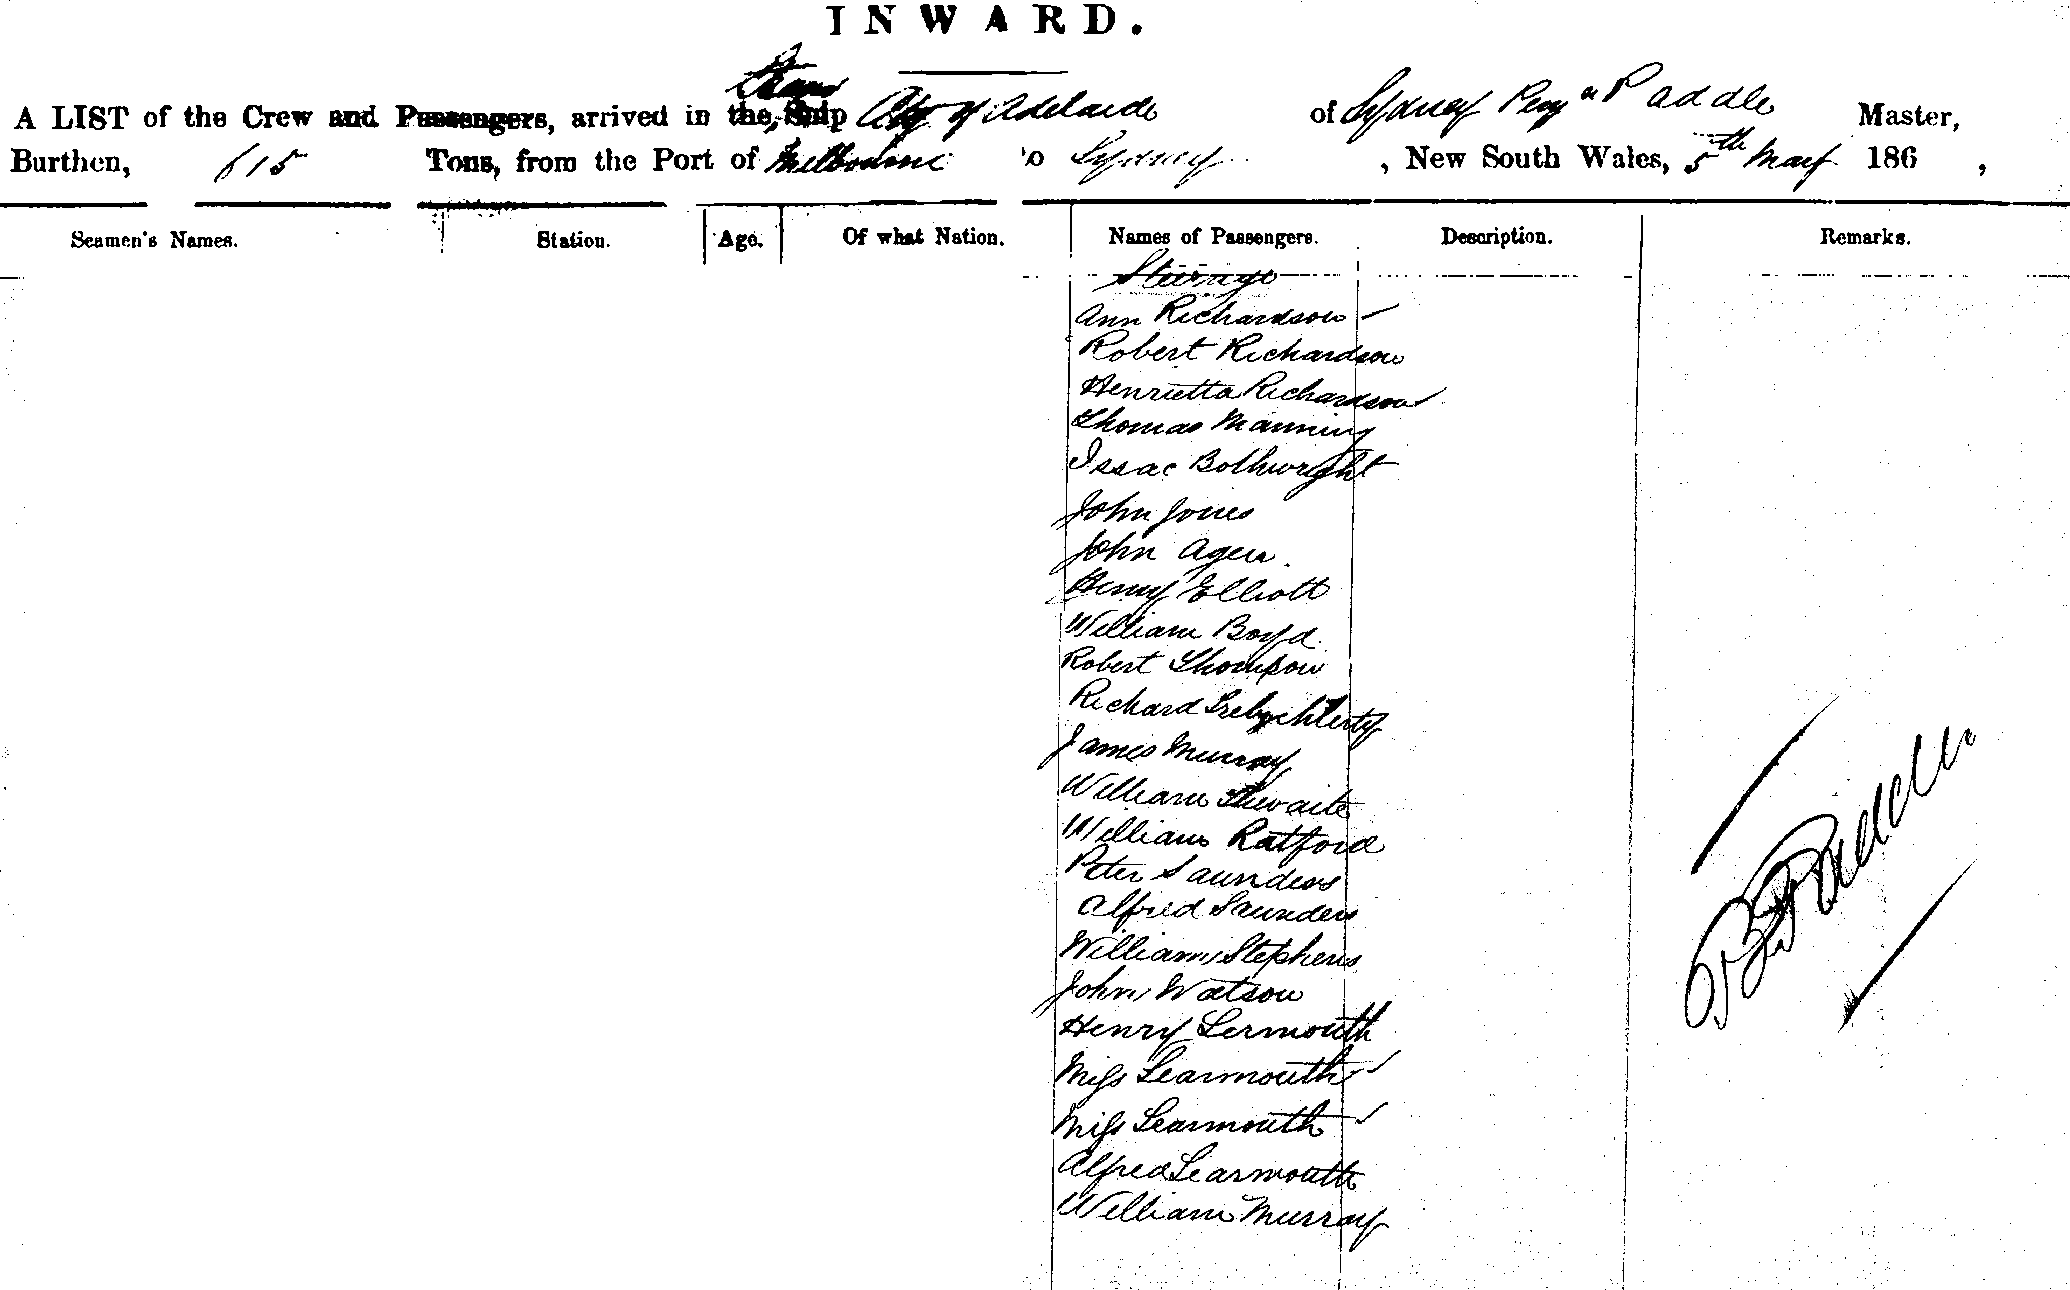 INWARD.
A LIST of the Crew and Passengers, arrived in the, Ship City of Adelaide of Sydney Master,
Burthen, 615 Tons, from the Port of Melbourne to Sydney, New South Wales, 5th 186 ,
Seamen's Names. Station. Age. Of what Nation. Names of Passengers. Description. Remarks.
Steerage
Ann Richardson
Robert Richardson
Henrietta Richardson
Thomas Manning
Issac Bothwright
John Jones
John Agen
Henry Elliott
William Boyd
Robert Thompson
Richard
James Murray
William Thwaite
William Ratford
Peter Saunders
Alfred Saunders
William Stephens
John Watson
Henry Lermouth
Miss Learmouth
Miss Learmouth
Alfred Learmouth
William Murray